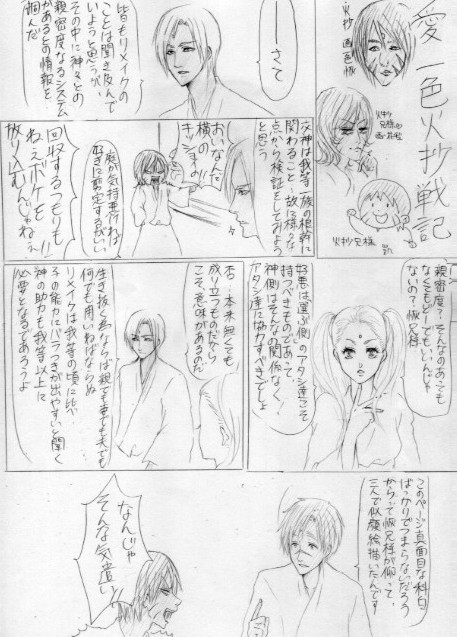 愛一色火抄戦記
火抄
画 色恢
火抄
兄様の
画・花絵
火抄兄様
ーさて
皆もリメイクの
ことは聞き及んで
いようと思うが
その中に神々との
親密度なるシステム
があるとの情報を
掴んだ
交神は我等一族の根幹に
関わること 故に様々な
点から検証をしてみよう
と思う
おいなんだ
横の
キショイの!!
庭が気持悪ければ
好きに剪定するがいい
回収するつもりも
ねぇボケを
放り込むんじゃねぇ!!
親密度?そんなのあっても
なくてもどーでもいいんじゃ
ないの?恢兄様
好悪は選ぶ側のアタシ達こそ
持つべきものであって、
神側はそんなの関係なく
アタシ達に協力すべきでしょ
否…本来無くても
成り立つものだから
こそ、意味があるのだ
生き抜く為ならば親でも妻でも夫でも
何でも用いねばならぬ
リメイクは我等の頃に比べ
子の能力にバラつきが出やすいと聞く
神の助力も我等以上に
必要となるであろうよ
このページ真面目な科白
ばっかりでつまらないだろう
からって恢兄様が仰って、
三人で似顔絵描いたんです
なんじゃ
そんな気遣い